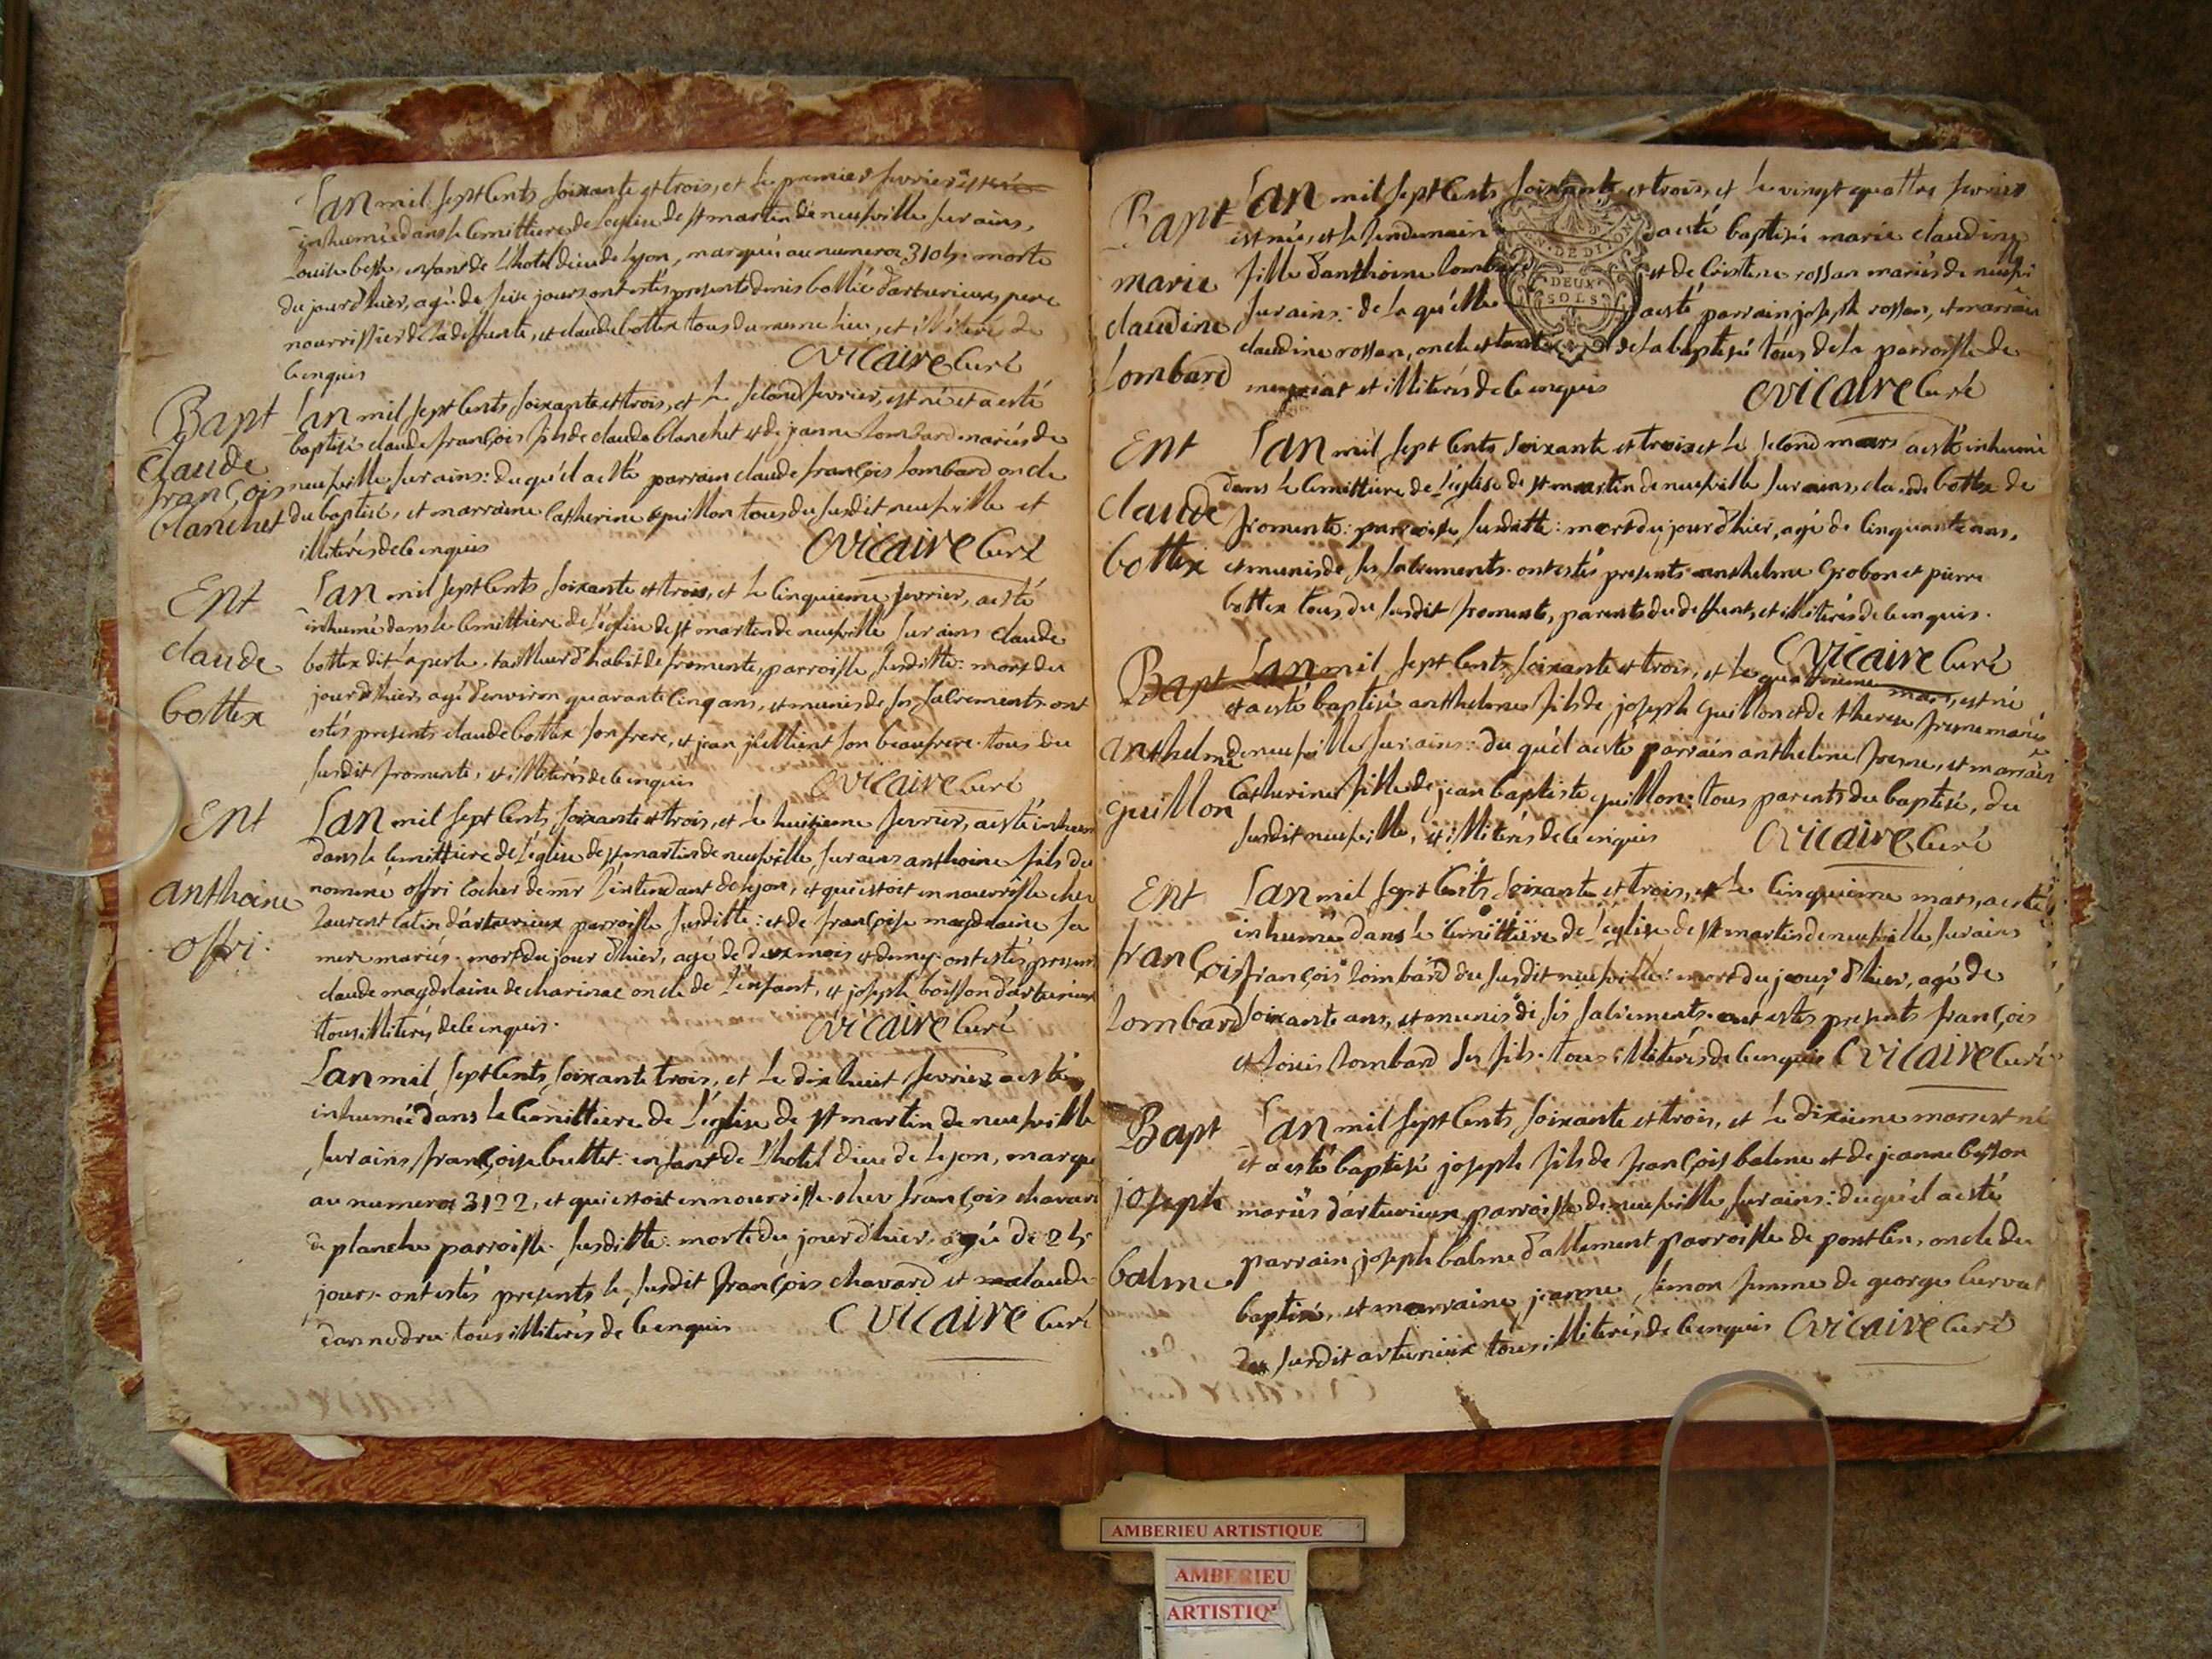 L'an mil sept cents soixante et trois, et le premier fevrier
inhumée dans le cemittiere de l'eglise de st martin de neufville sur ains,
Louise besse, enfant de l'hotel dieu de lyon, marquée au numero morte
du jour d'hier, agée de seise jours ont estés presents denis bollié d'arturieux pere
nourrissier de la deffunte, et claude bottex tous du meme lieu, et illiterés de
ce enquis C vicaire curé
Bapt
claude
françois
blanchet
L'an mil sept cents soixante et trois, et le second fevrier, est né et a esté
baptisé claude françois fils de claude blanchet et de jeanne lombard mariés de
neufville sur ains: du quel a esté parrain claude françois lombard oncle
du baptisé, et marraine catherine guillon tous du susdit neufville et
illiterés de ce enquis C vicaire curé
Ent
claude
bottex
L'an mil sept cents soixante et trois, et le cinquieme fevrier, a esté
inhumé dans le cemittiere de l'eglise de st martin de neufville sur ains claude
bottex dit laperle tailleur d'habit de fromente, parroisse susditte: mort du
jour d'hier, agé d'environ quarante cinq ans, et munis de ses sacrements ont
estés presents claude bottex son frere, et jean son beaufrere tous du
susdit fromente, et illiterés de ce enquis C vicaire curé
Ent
anthoine
offri
L'an mil sept cents soixante et trois, et le huitieme fevrier, a esté inhumé
dans le cemittiere de l'eglise de st martin de neufville sur ains anthoine fils du
nommé offri cocher de mr l'intendant de lyon, et qui estoit en nourrisse chez
laurent catin d'arturieux parroisse susditte: et de françoise magdelaine sa
mere mariés. mort du jour d'hier, agé de deux mois et demy ont estés presents
claude magdelaine de charinac oncle de l'enfant, et joseph boisson d'arturieux
tous illiterés de ce enquis. C vicaire curé
L'an mil sept cents soixante trois, et le dix huit fevrier a esté
inhumée dans le cemittiere de l'eglise de st martin de neufville
sur ains françoise buttet enfant de l'hotel dieu de lyon, marqué
au numero 3122, et qui estoit en nourrisse chez françois chavard
de planche parroisse susditte. morte du jour d'hier. agée de
jours ont estés presents le susdit françois chavard et claude
tous illiterés de ce enquis C vicaire curé
Bapt
marie
claudine
lombard
L'an mil sept cents soixante et trois, et le vingt quattre fevrier
est née, et le lendemain a esté baptisée marie claudine
fille d'anthoine lombard et de cristine rossan mariés de neufvi
sur ains: de la quelle a esté parrain joseph rossan, et marraine
claudine rossan, oncle et tante de la baptisée tous de la parroisse de
et illiterés de ce enquis C vicaire curé
DE DIJON
DEUX
SOLS
Ent
claude
bottex
L'an mil sept cents soixante et trois et le second mars a esté inhumé
dans le cemittiere de l'eglise de st martin de neufville sur ains, claude bottex de
fromente: parroisse susditte: mort du jour d'hier, agé de cinquante ans,
et munis de ses sacrements. ont estés presents anthelme grobon et pierre
bottex tous du susdit fromente, parents du deffunt, et illiterés de ce enquis.
C vicaire curé
Bapt
anthelme
guillon
L'an mil sept cents soixante et trois, et le quatrieme mars, est né
et a esté baptisé anthelme fils de joseph guillon et de therese mariés
de neufville sur ains: du quel a esté parrain anthelme et marraine
catherine fille de jean baptiste guillon: tous parents du baptisé, du
susdit neufville, et illiterés de ce enquis C vicaire curé
Ent
françois
lombard
L'an mil sept cents soixante et trois, et le cinquieme mars, a esté
inhumé dans le cemittiere de l'eglise de st martin de neufville sur ains
françois lombard du susdit neufville: mort du jour d'hier, agé de
soixante ans, et munis de ses sacrements. ont estés presents françois
et louis lombard ses fils. tous illiterés de ce enquis C vicaire curé
Bapt
joseph
balme
L'an mil sept cents soixante et trois, et le dixieme mars est né
et a esté baptisé joseph fils de françois balme et de jeanne besson
mariés d'arturieux parroisse de neufville sur ains: du quel a esté
parrain joseph balme d'allement parroisse de poncin, oncle du
baptisé, et marraine jeanne simon femme de george curvat
du susdit arturieux tous illiterés de ce enquis C vicaire curé
AMBERIEU ARTISTIQUE
AMBERIEU
ARTISTIQ